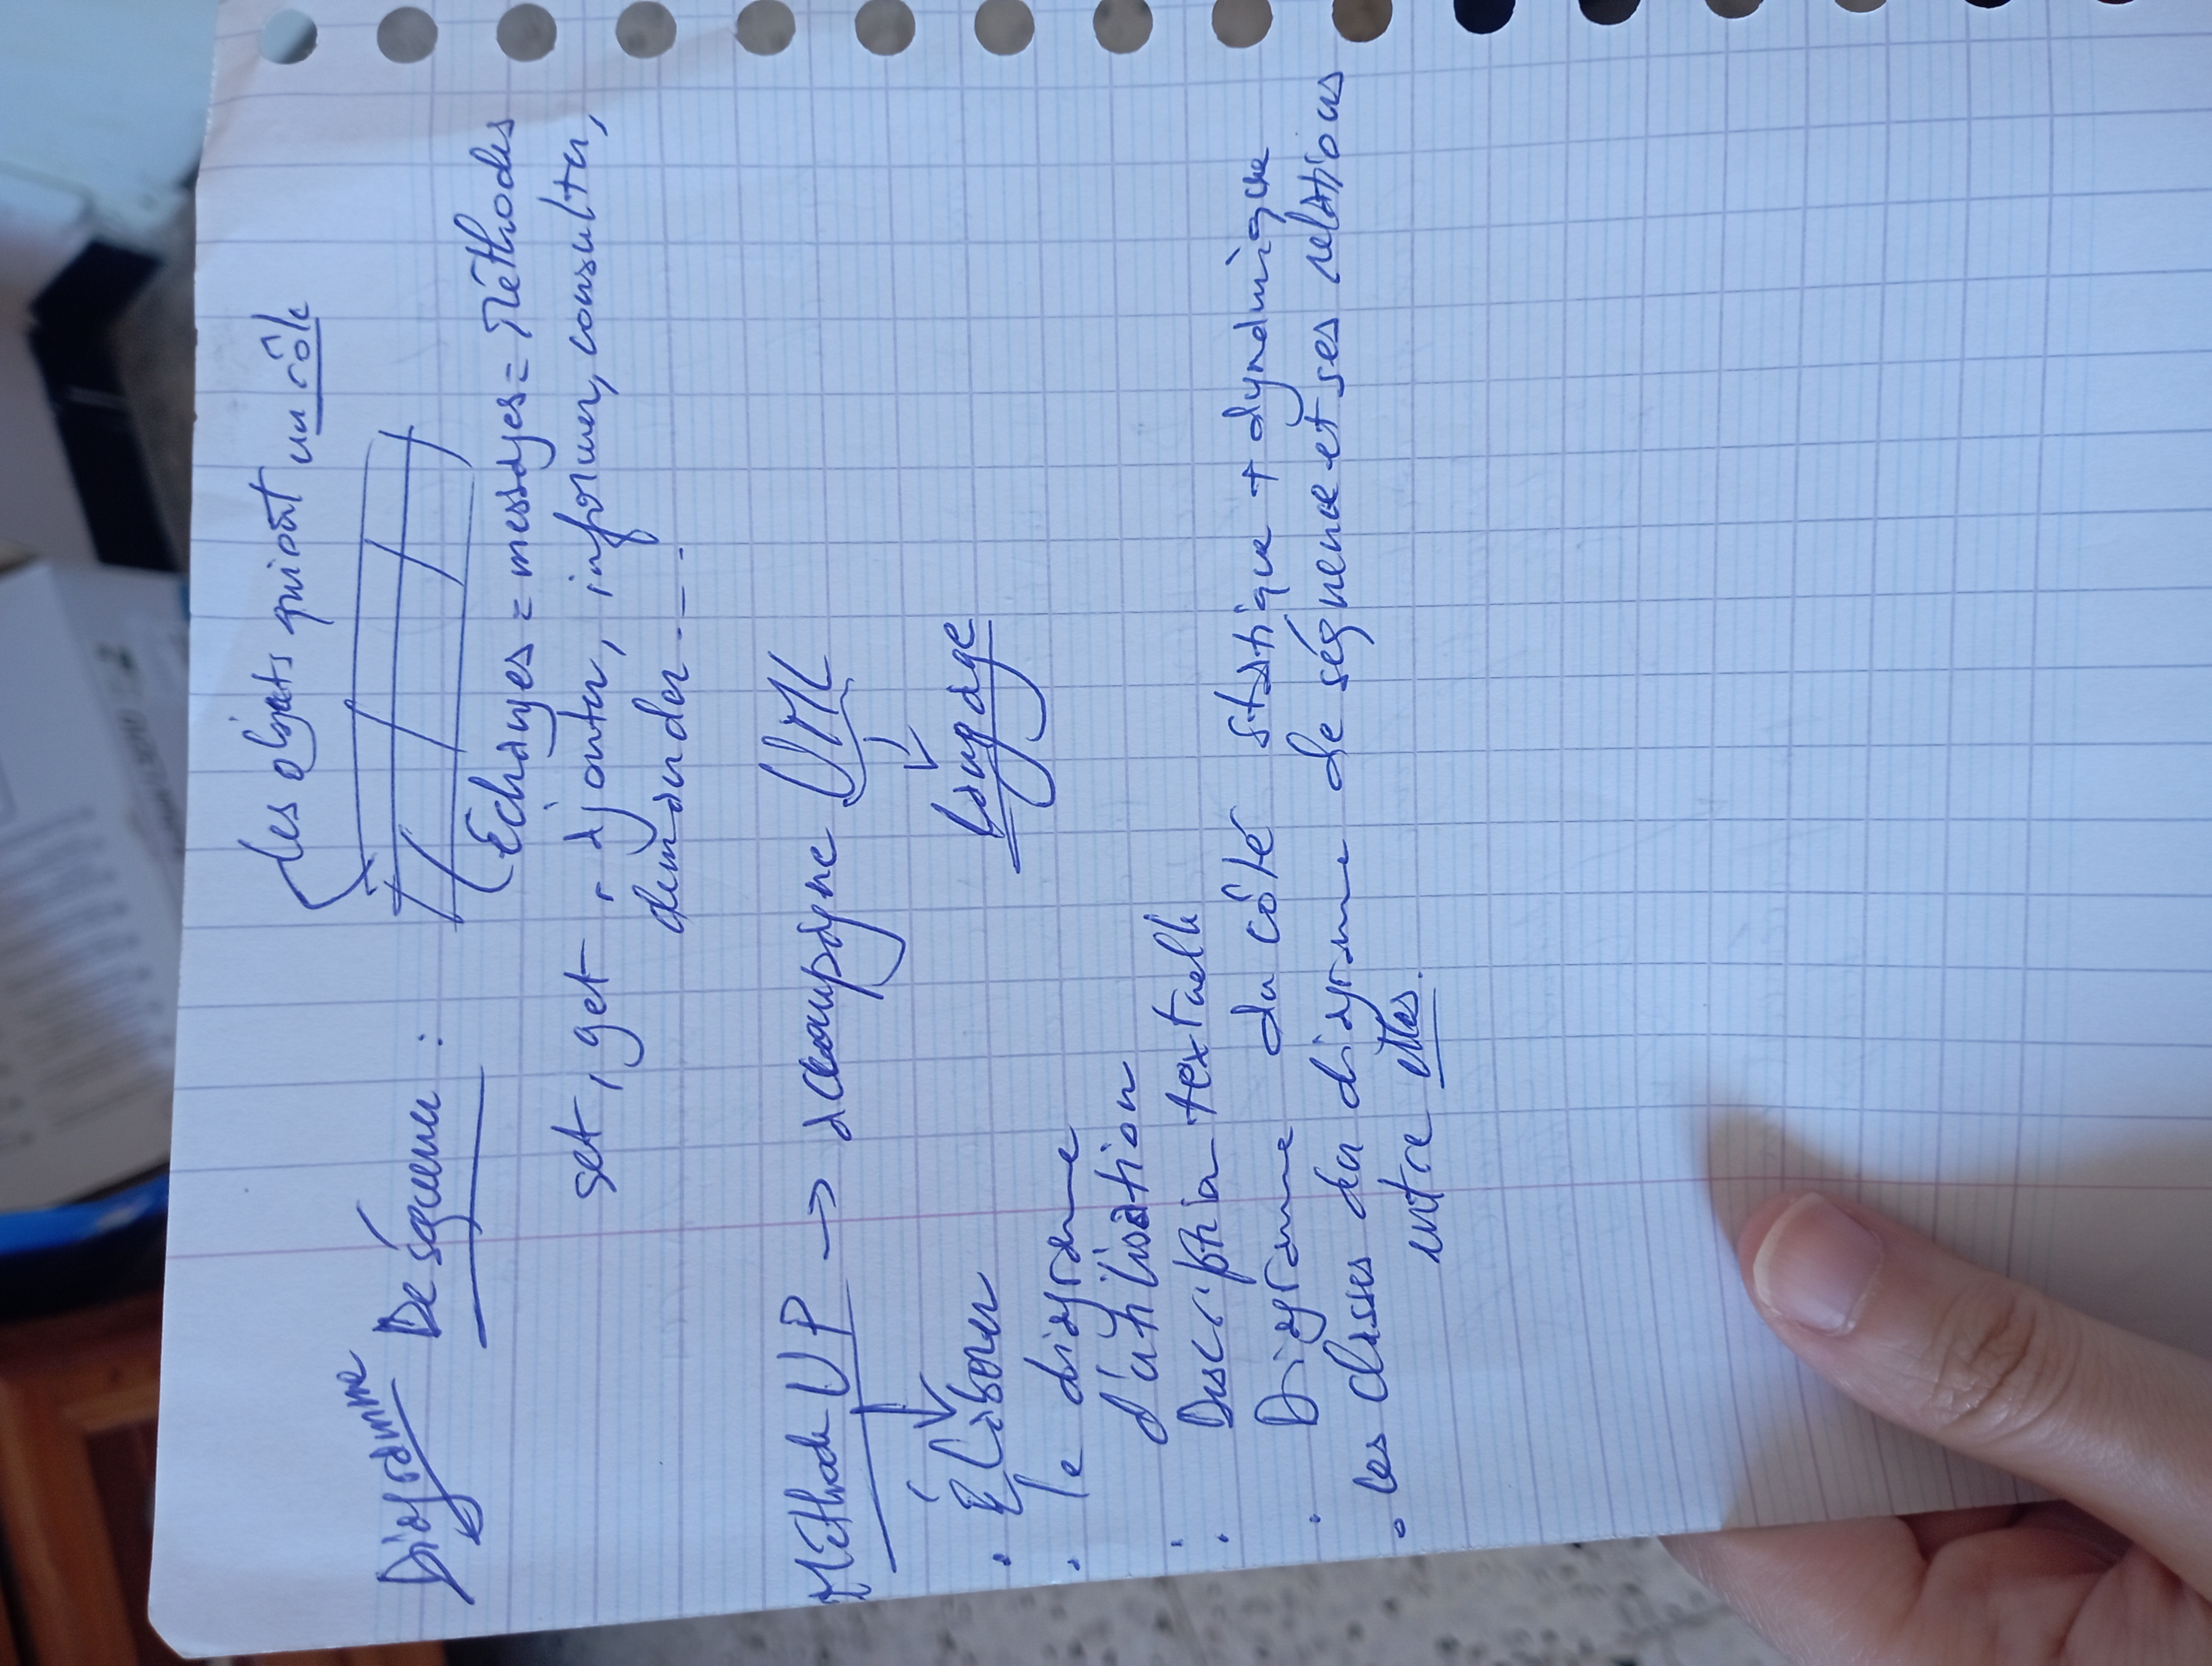 Les objets qui ont un rôle
Diagramme De séquence :
Échanges = messages = Méthodes
set, get, ajouter, informer, consulter,
demander ----
Méthode UP → accompagne UML
. Élaborer
Langage
. le diagrame
d'utilisation
: Description textuelle
. Diagrame du côté statique + dynamique
. les classes du diagrame de séquence et ses relations
entre elles.